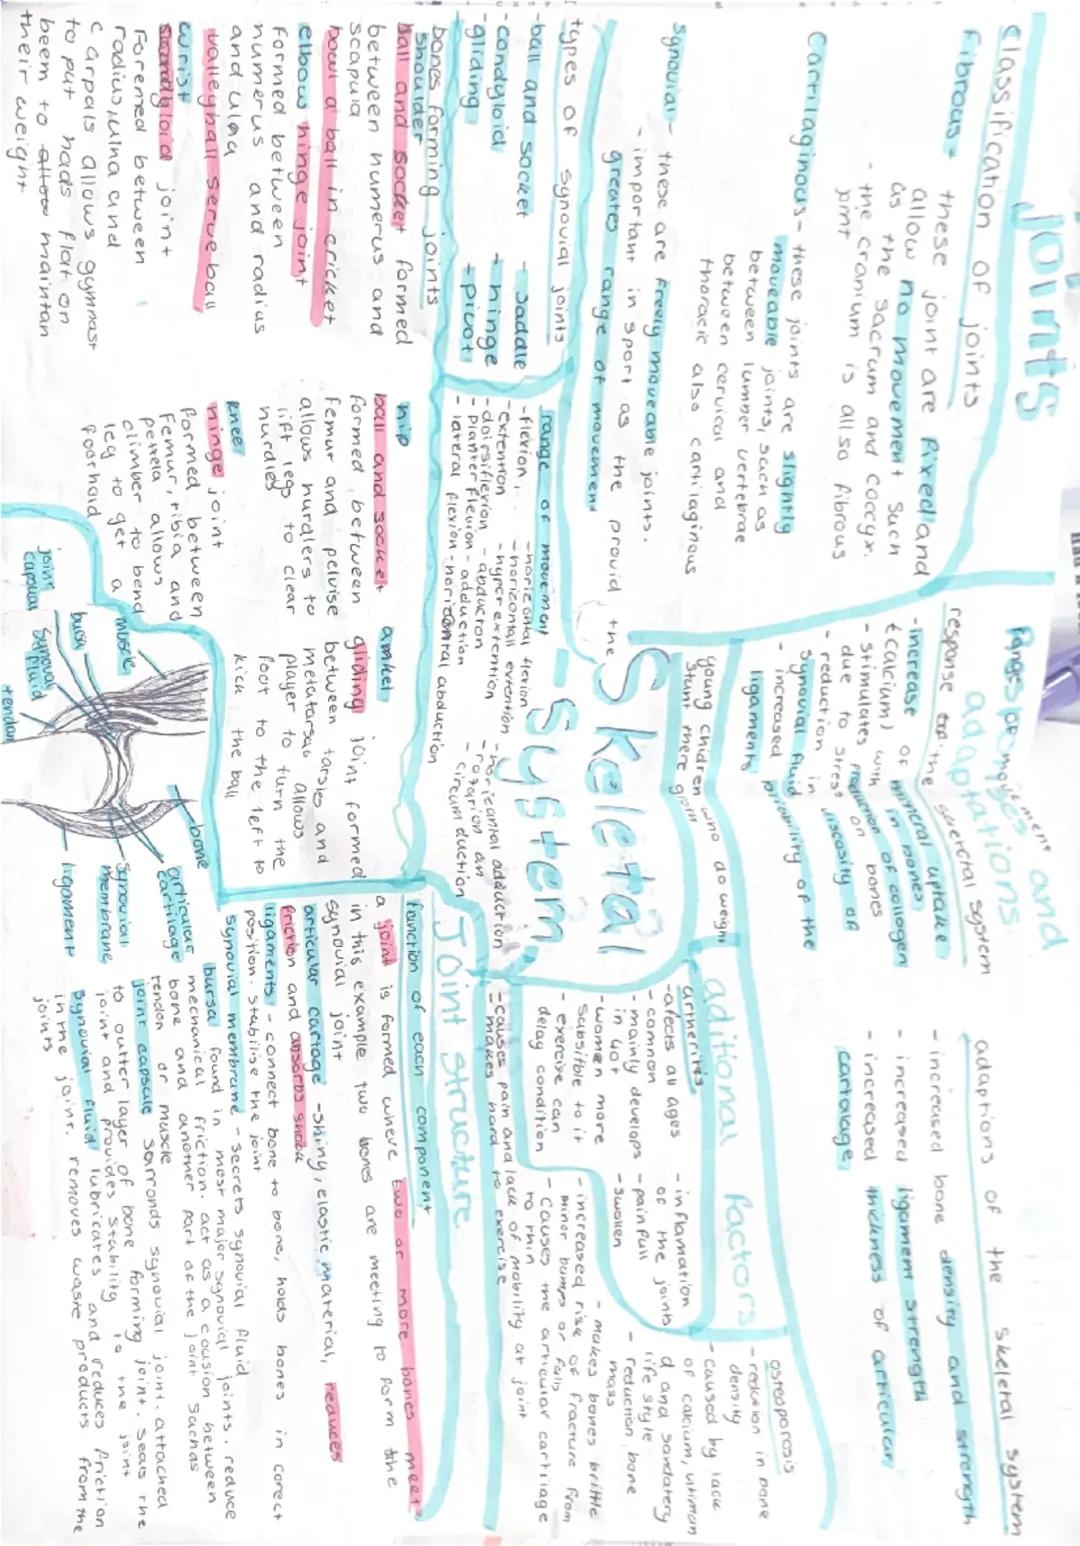 Skeletal
System
joints
Classification of joints
Fibrous - these joint are fixed and
allow no movement such
as the sacrum and coccyx.
- the cranium is allso fibrous
joint
Cartilaginous - these joints are slightly
moveable joints, such as
between lumber vertebrae
between cervical and
thoracic also cartilaginous
Synovial - these are freely moveable joints.
- important in sport as the provid the
greates range of movement
types of synovial joints
- ball and socket - saddle
- condyloid - hinge
- gliding - pivot
range of movement
- flexion, - horizontal flexion
- extention - horizontall extention - horizontal adduction
- dorsiflexion - hyperextention - rotation an
- planter flexion - abduction circumduction
- lateral flexion - adduction
- horizontal abduction
bones forming joints
shoulder
ball and socket formed
between humerus and
scapula
bowl a ball in cricket
elbow hinge joint
formed between
humerus and radius
and ulna
valleyball serve ball
wrist
condyloid joint
Foremed between
radius, ulna and
carpals allows gymnast
to put hads flat on
beem to maintan
their weight
hip
ball and socket
formed between
femur and pelvise
allows hurdlers to
lift legs to clear
hurdles
knee
hinge joint
formed between
femur, tibia and
petela allows
climber to bend
leg to get a
foorhold
ankel
gliding joint formed
between tarsles and
metatarsal allows
player to turn the
foot to the left to
kick the ball
response of the skeletal system
- increase of mineral uptake
(calcium) in bones
- stimulates production of collogen
due to stress on bones
- reduction in viscosity of
synovial fluid
- increased pliability of the
ligaments
adaptations
adaptions of the skeletal system
- increased bone density and strength
- increased ligament strength
- increased thickness of articular
cartalage
additional factors
young chidren who do weight
stunt there
artheritis
- afects all ages
- common
- mainly develops
in 40t
- women more
subsitble to it
- exercise can
delay condition
- inflamation
of the joints
- painfull
- swollen
- causes pain and lack of mobility at joint
- makes hard to exercise
osteoporosis
- redution in bone
density
- caused by lack
of calcium, vitiman
d and sandatery
life style
- reduction bone
mass
- makes bones brittle
- increased risk of fracture from
minor bumps or falls
- causes the articular cartilage
to thin
Joint structure
function of each component
a joint is formed where two or more bones meet
in this example two bones are meeting to form the
synovial joint
articular cartlage - shiny, elastic material, reduces
friction and absorbs shock
ligaments - connect bone to bone, holds bones in corect
position. stabilise the joint
synovial membrane - secrets synovial fluid
bursa found in most major synovial joints. reduce
mechanical friction. act as a cousion between
bone and another part of the joint suchas
tendon or muscle
joint capsule surronds synovial joint. attached
to outter layer of bone forming joint. seals the
joint and provides stability to the joint
Synovial fluid lubricates and reduces friction
in the joint. removes waste products from the
joints
joint
capsual
Synoval
fluid
bursa
muscle
tendon
bone
articular
cartilage
Synovial
membrane
ligament